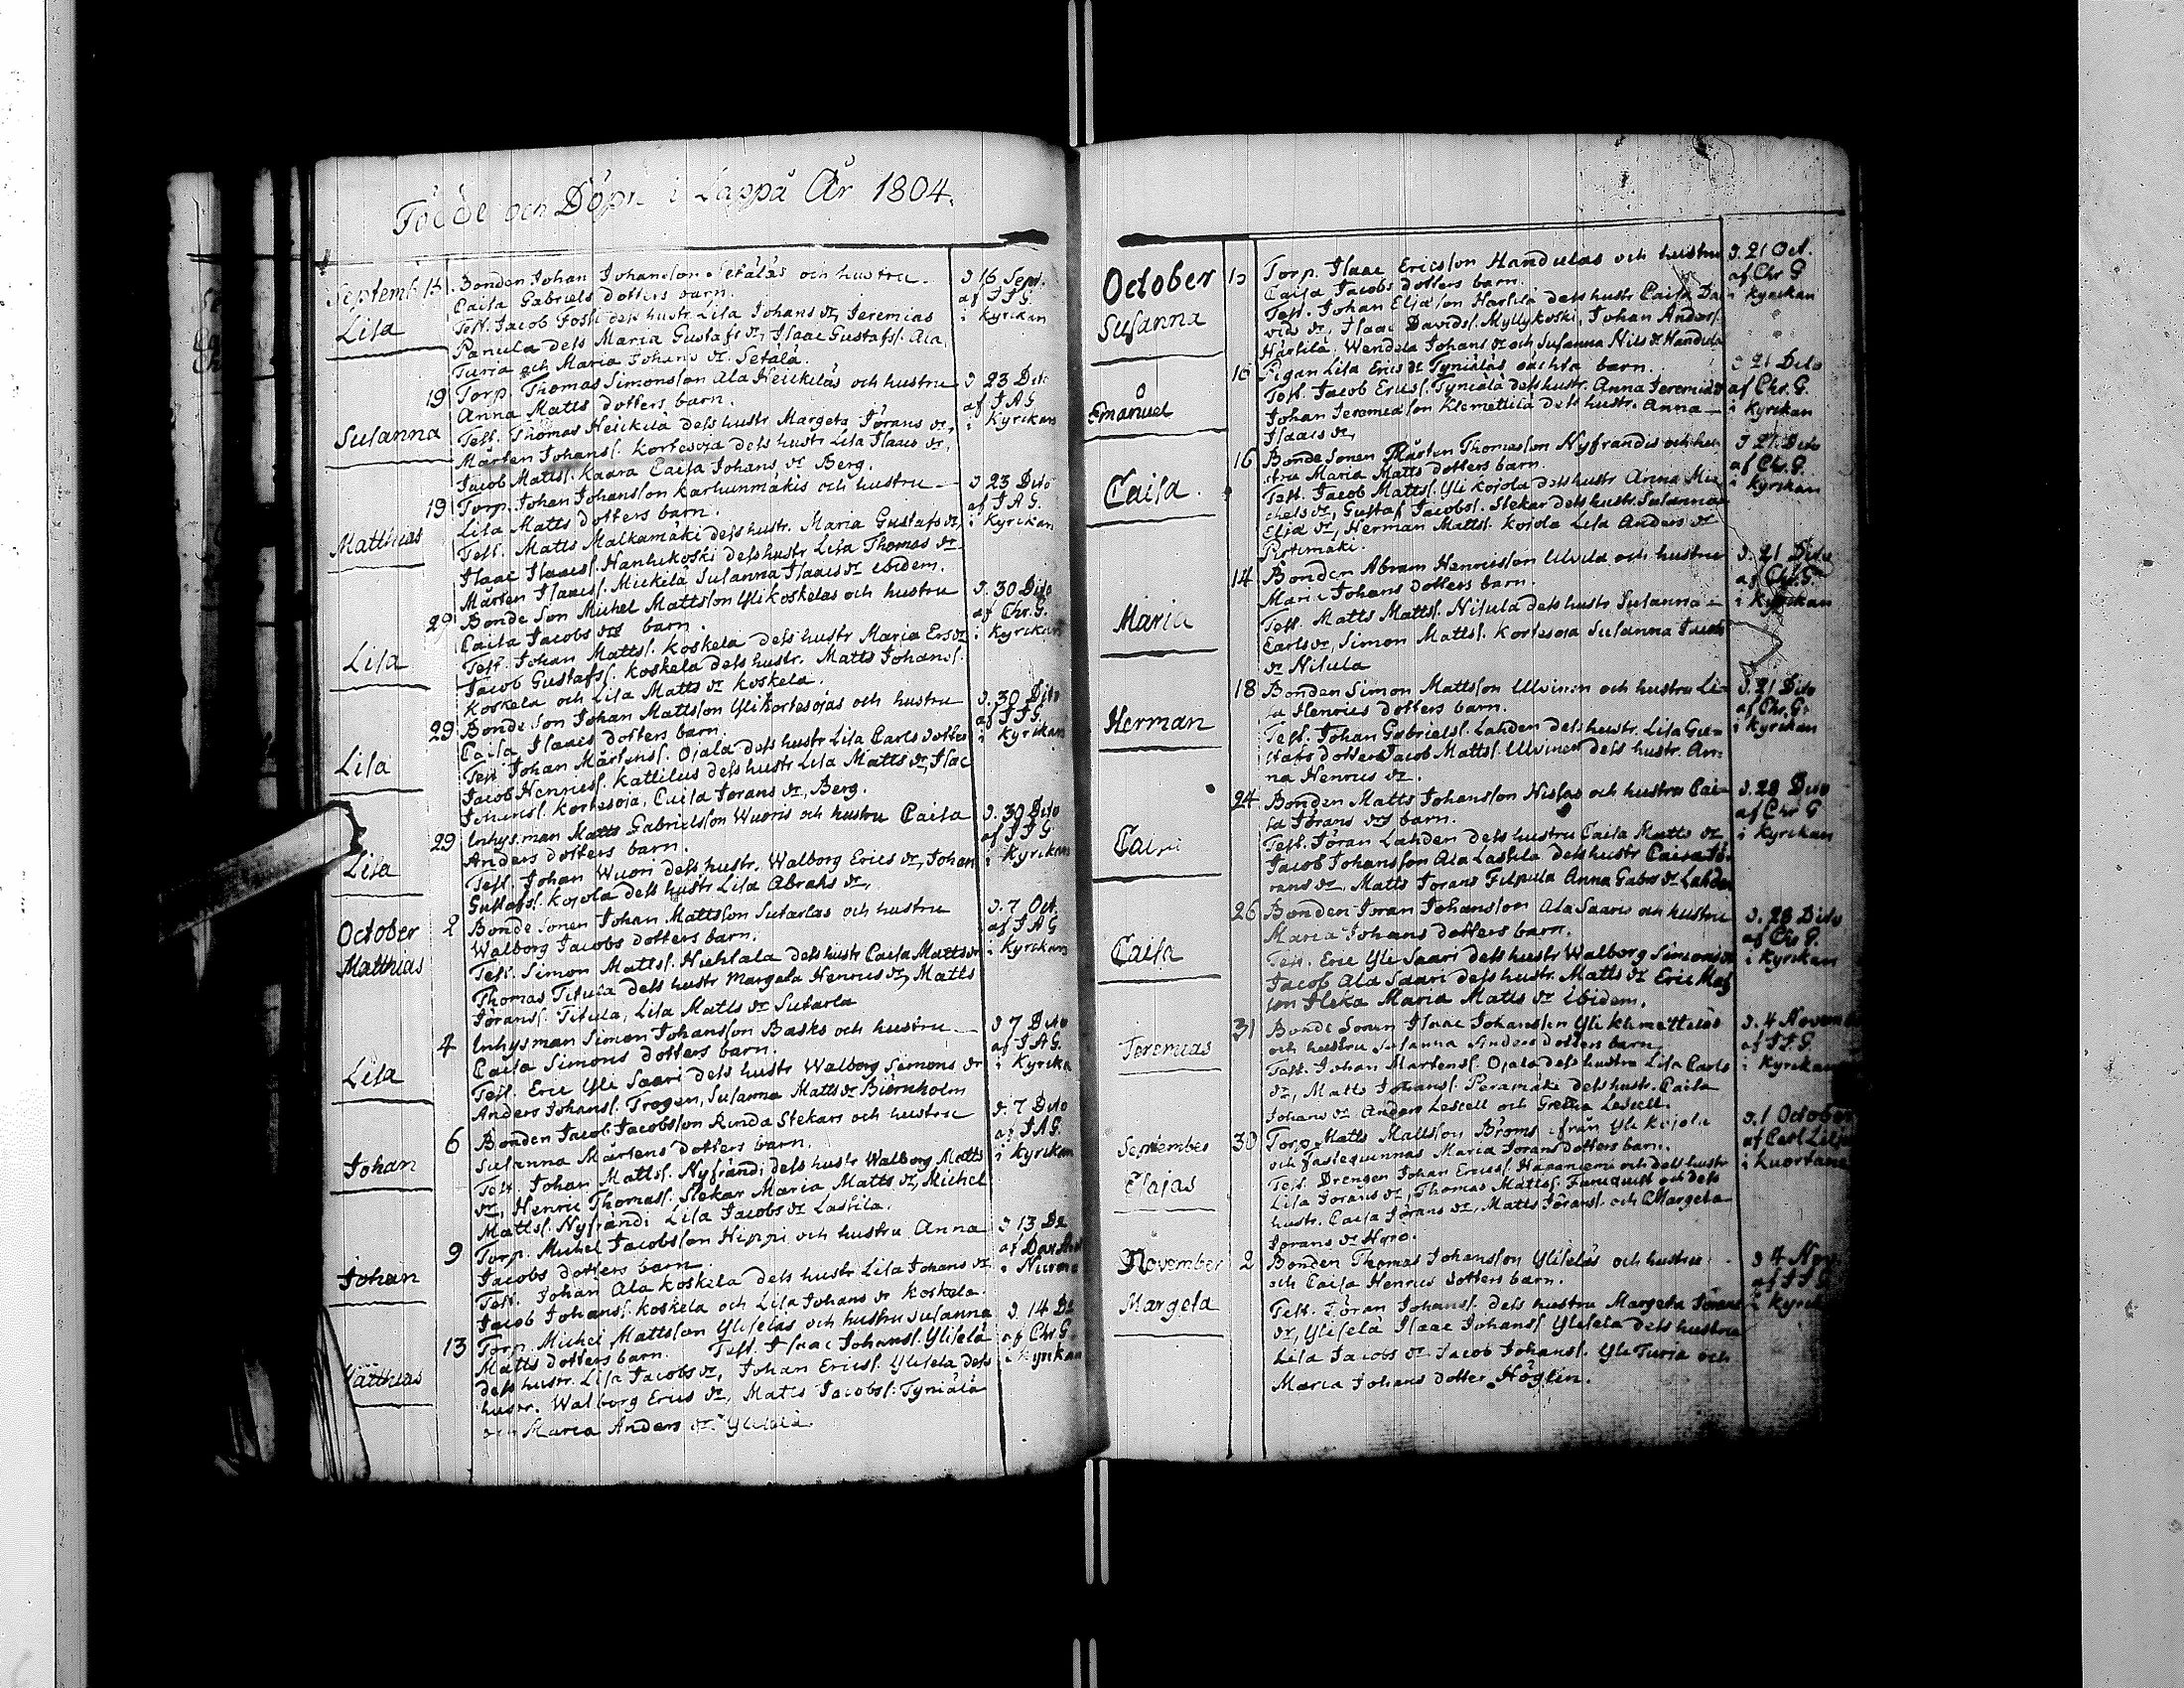 Födde och Döpte i Lappå År 1804.
Septemb. 15. Bonden Johan Johansson Setäläs och hustru d 16 Sept.
Caisa Gabriels dotters barn. af J J G.
Lisa Test. Jacob Foss dess hustr Lisa Johans dr, Jeremias i Kyrckan
Panula dess Maria Gustafs dr, Isaac Gustafss. Ala
Turja och Maria Johans dr Setälä.
19 Torp Thomas Simonsson Ala Heickiläs och hustru d 23 Dito
Anna Matts dotters barn. af J A G
Susanna Test. Thomas Heickilä dess hustr Margeta Jörans dr, i Kyrckan
Mårten Johanss. Kortesoja dess hustr Lisa Isaacs dr,
Jacob Mattss. Kaara Caisa Johans dr Berg.
19 Torp. Johan Johansson Karhunmäkis och hustru d 23 Dito
Lisa Matts dotters barn. af J A G.
Matthias Test. Matts Malkamäki dess hustr. Maria Gustafs dr, i Kyrckan
Isaac Isaacss. Hanhikoski dess hustr Lisa Thomas dr
Mårten Isaacss. Mickelä Susanna Isaacs dr ibidem.
29 Bonde Son Michel Mattsson Yli Koskelas och hustru d. 30 Dito
Caisa Jacobs drs barn. af Chr. G.
Lisa Test. Johan Mattss. Koskela dess hustr Maria Ers dr i Kyrckan
Jacob Gustafss. Koskela dess hustr. Matts Johanss.
Koskela och Lisa Matts dr Koskela.
29 Bonde Son Johan Mattsson Yli Kortesojas och hustru d. 30 Dito
Caisa Isaacs dotters barn. af J J G.
Lisa Test Johan Mårtenss. Ojala dess hustr Lisa Carls dotter i Kyrckan
Jacob Henricss. Kattilus dess hustr Lisa Matts dr, Isac
Johanss. Kortesoja, Caisa Jörans dr, Berg.
29 Inhysman Matts Gabrielsson Wuoris och hustru Caisa d. 30 Dito
Anders dotters barn. af J J G
Lisa Test. Johan Wuori dess hustr. Walborg Erics dr, Johan i Kyrckan
Gustafss. Kojola dess hustr Lisa Abrahs dr,
October 2 Bonde Sonen Johan Mattsson Sutarlas och hustru d. 7 Oct.
Walborg Jacobs dotters barn. af J A G
Matthias Test. Simon Mattss. Huhtala dess hustr Caisa Matts dr i Kyrckan
Thomas Titula dess hustr Margeta Henrics dr, Matts
Jöranss. Titula, Lisa Matts dr Sutarla
4 Inhysman Simon Johansson Basks och hustru d 7 Dito
Caisa Simons dotters barn. af J A G.
Lisa Test. Eric Yli Saari dess hustr Walborg Simons dr i Kyrcka
Anders Johanss. Trogen, Susanna Matts dr Biörnholm
6 Bonden Jacob Jacobsson Rinda Stekars och hustru d. 7 Dito
Susanna Mårtens dotters barn. af J A G.
Johan Test. Johan Mattss. Nyfrändi dess hustr Walborg Matts i Kyrckan
dr, Henric Thomass. Stekar Maria Matts dr, Michel
Mattss. Nyfrändi Lisa Jacobs dr Lassila.
9 Torp. Michel Jacobsson Hippi och hustru Anna d 13 D
Jacobs dotters barn. af Dav
Johan Test. Johan Ala Koskela dess hustr Lisa Johans dr i
Jacob Johanss. Koskela och Lisa Johans dr Koskela.
13 Torp. Michel Mattsson Yliseläs och hustru Susanna d 14 D
Matts dotters barn. Test. Isaac Johanss. Yliselä af Chr G
Matthias dess hustr. Lisa Jacobs dr, Johan Ericss. Yliselä dess i Kyrckan
hustr. Walborg Erics dr, Matts Jacobss. Tyniälä
och Maria Anders dr Yliselä.
October Torp. Isaac Ericsson Handulas och hustru d. 21 Oct.
Caisa Jacobs dotters barn. af Chr G
Susanna Test. Johan Eliasson Harsilä dess hustr Caisa Da- i Kyrckan
vids dr, Isaac Davidss. Myllykoski, Johan Anderss.
Harsilä. Wendela Johans dr och Susanna Nils dr Handula
16 Pigan Lisa Erics dr Tyniäläs oächta barn. d 21 Dito
Test. Jacob Ericss. Tyniälä dess hustr. Anna Jeremias dr af Chr. G.
Emanuel Johan Jeremiasson Klemettilä dess hustr. Anna i Kyrckan
Isaacs dr,
16 Bonde Sonen Mårten Thomasson Nyfrändis och hu- d 21 Dito
stru Maria Matts dotters barn. af Chr. G.
Caisa. Test. Jacob Mattss. Yli Kojola dess hustr Anna Mi- i Kyrckan
chels dr, Gustaf Jacobss. Stekar dess hustr. Susanna
Elias dr, Herman Mattss. Kojola Lisa Anders dr
14 Bonden Abram Henricsson Ulvila och hustru d. 21 Dito
Maria Johans dotters barn. af Chr. G.
Maria Test. Matts Mattss. Nisula dess hustr Susanna i Kyrckan
Carls dr, Simon Mattss. Kortesoja Susanna Jacobs
dr Nisula
18 Bonden Simon Mattsson Ulvinen och hustru Li- d. 21 Dito
sa Henrics dotters barn. af Chr. G.
Herman Test. Johan Gabrielss. Lahden dess hustr. Lisa Gu- i Kyrckan
stafs dotter Jacob Mattss. Ulvinen dess hustr. An-
na Henrics dr.
24 Bonden Matts Johansson Nissas och hustru Cai- d. 28 Dito
sa Jörans drs barn. af Chr G
Test. Jöran Lahden dess hustru Caisa Matts dr i Kyrckan
Jacob Johansson Ala Lassila dess hustr Caisa Jö-
rans dr, Matts Jörans Filpula Anna Gabrs dr Lahden
26 Bonden Jöran Johansson Ala Saaris och hustru d. 28 Dito
Maria Johans dotters barn. af Chr G.
Caisa Test. Eric Yli Saari dess hustr Walborg Simons dr i Kyrckan
Jacob Ala Saari dess hustr. Matts dr Eric Mats
son Ileka Maria Matts dr ibidem.
31 Bonde Sonen Isaac Johansson Yli Klemettiläs d. 4 Novem
och hustru Susanna Anders dotters barn af J J G
Jeremias Test. Johan Mårtenss. Ojala dess hustru Lisa Carls i Kyrckan
dr, Matts Johanss. Peramäki dess hustr. Caisa
Johans dr Anders Lescell och Gretha Lescell.
September 30 Torp. Matts Mattsson Broms ifrån Yli Kojola d. 1 October
och Maria Jörans dotters barn. af Carl Lilj
Esaias Test. Drengen Johan Ericss. Haapaniemi och dess hustr i Kuortane
Lisa Jörans dr, Thomas Mattss. Funcquist och dess
hustr. Caisa Jörans dr, Matts Jöranss. och Margeta
Jörans dr Hyro.
November 2 Bonden Thomas Johansson Yliseläs och hustru d 4 Nov
och Caisa Henrics dotters barn. af J J G
Margeta Test. Jöran Johanss. dess hustru Margeta Jörans i Kyrck
dr, Yliselä Isaac Johanss Yliselä dess hustru
Lisa Jacobs dr Jacob Johanss. Yli Turja och
Maria Johans dotter Höglin.